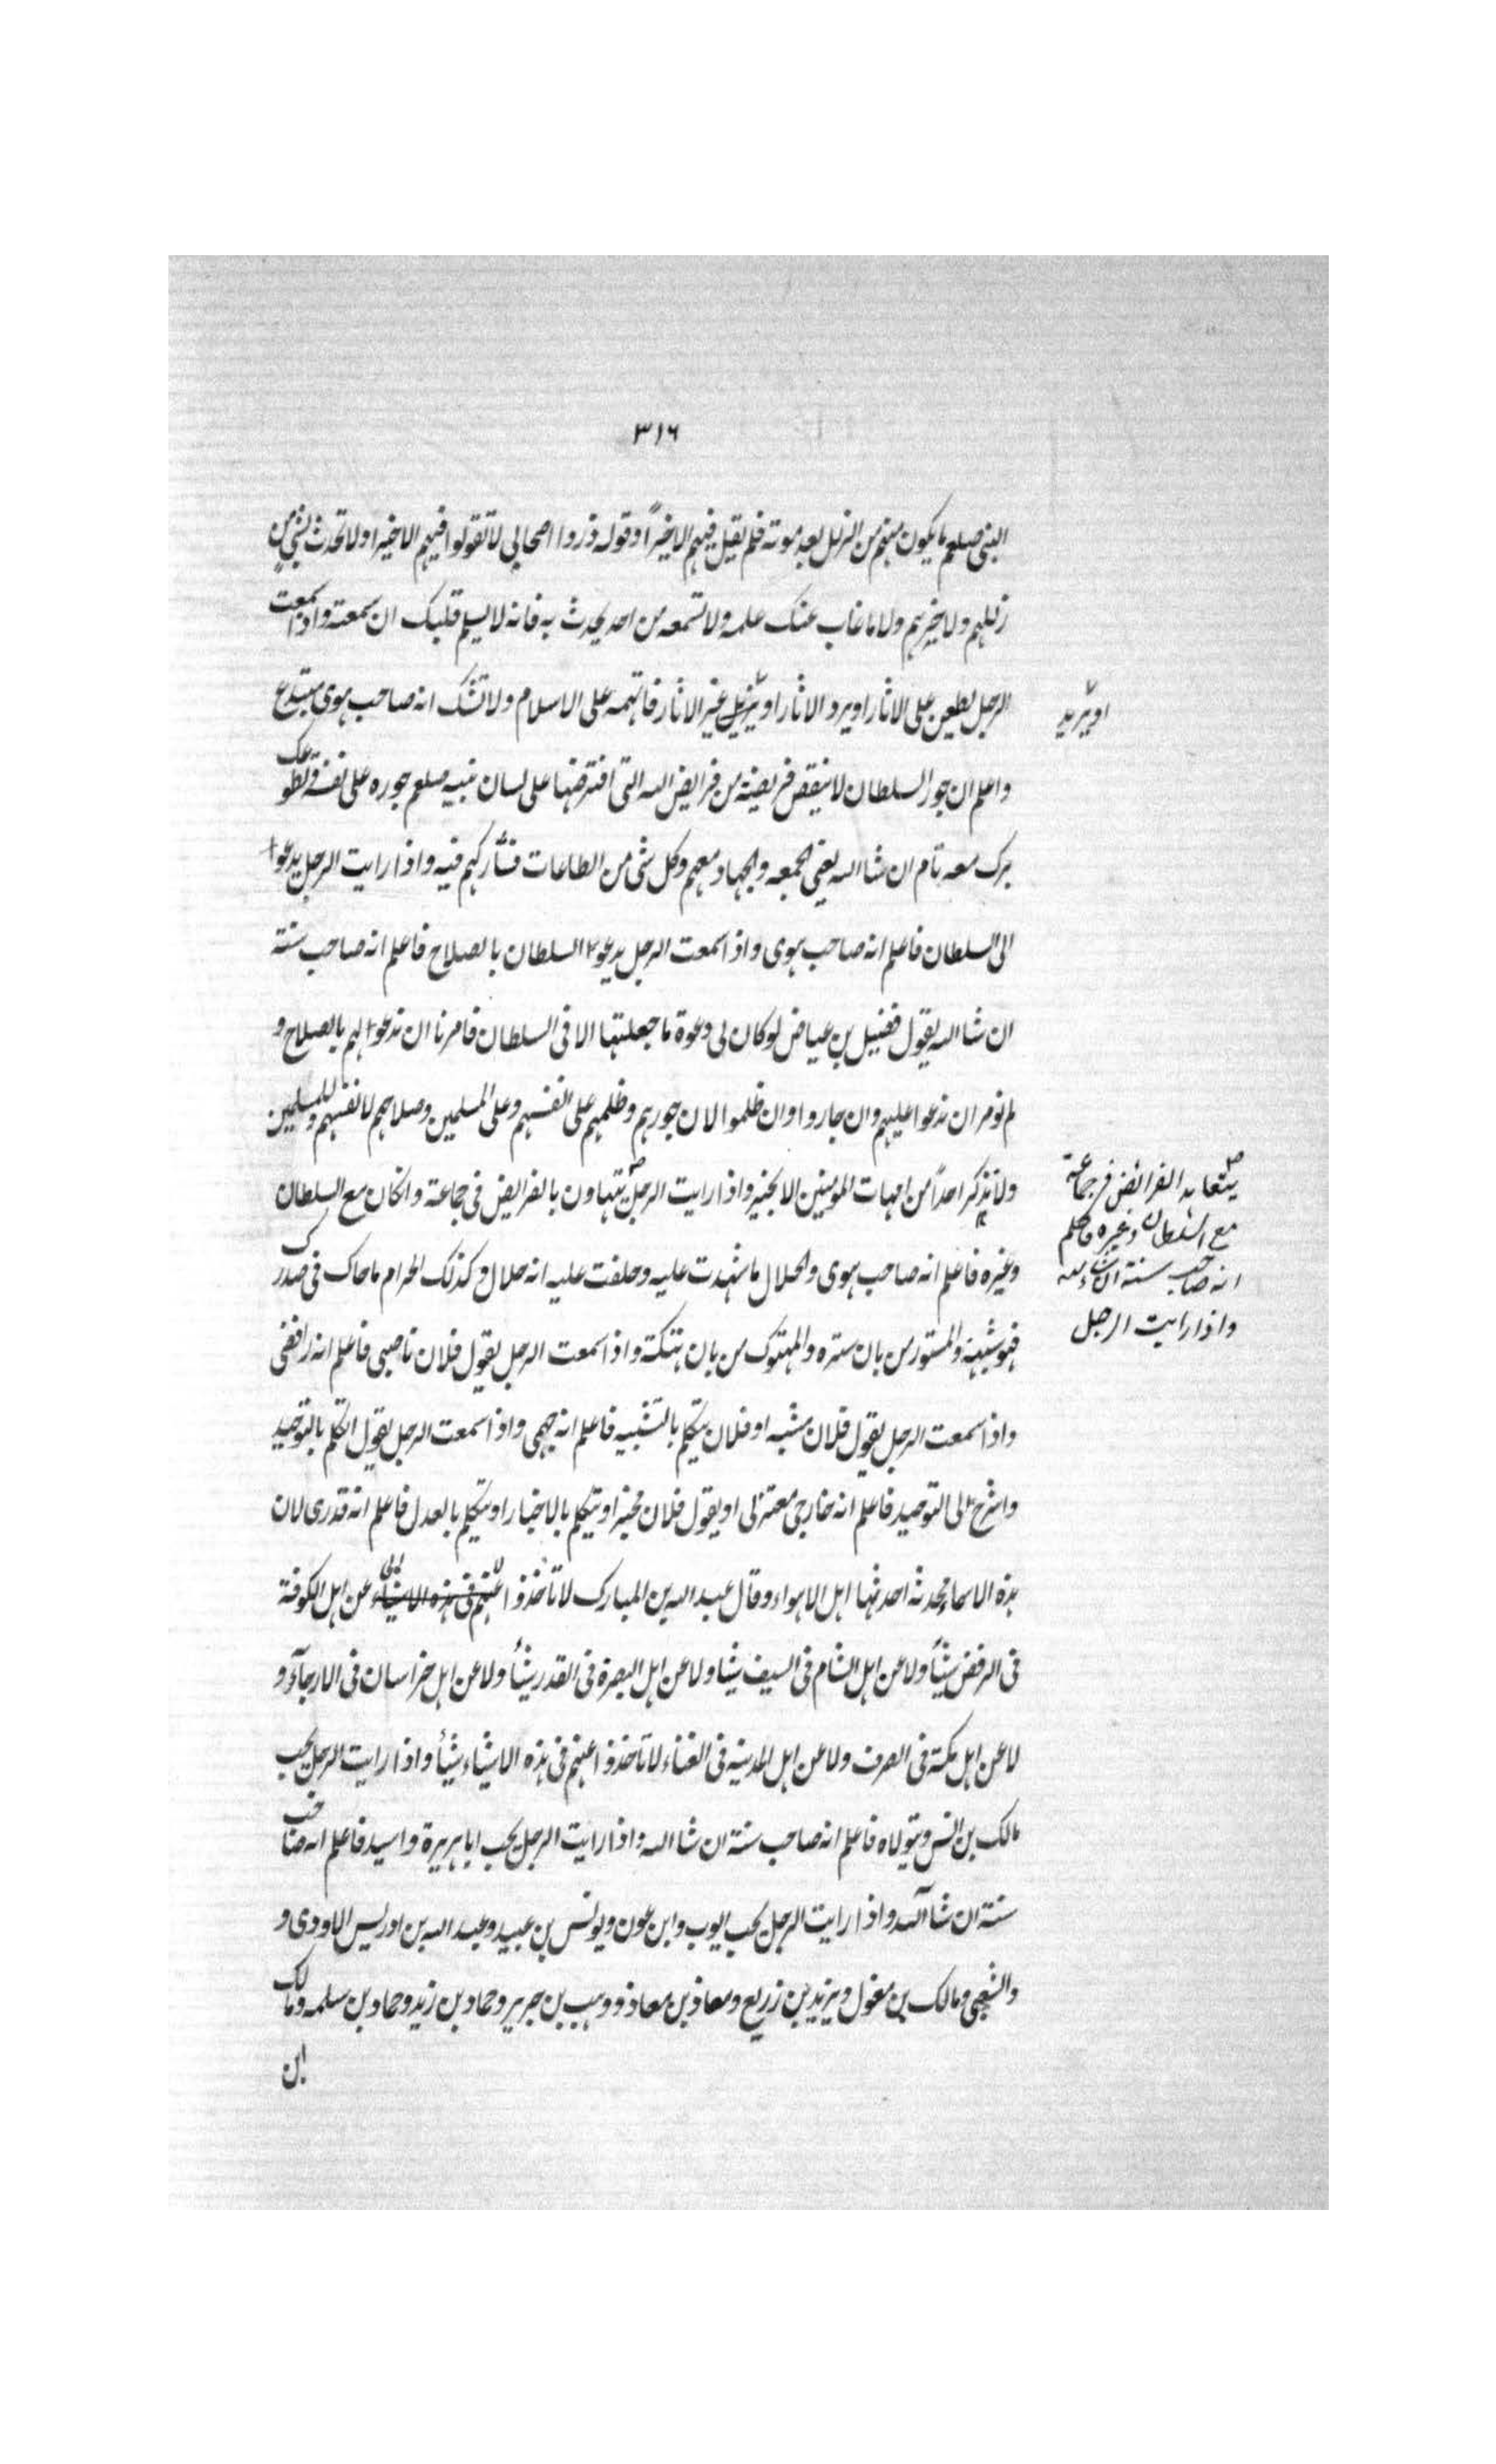 ٣١٦
النبى صلعم ما يكون منهم من الزلل بعد موته فلم يقل فيهم الا خيراً وقوله ذروا اصحابى لا تقولوا فيهم الا خيرا ولا تحدث بشئ من
زللهم ولا حربهم ولا ما غاب عنك علمه ولا تسمعه من احد يحدث به فانه لا يسلم قلبك ان سمعته واذا سمعت
الرجل يطعن على الاثار او يرد الاثار او يزيل غير الاثار فاتهمه على الاسلام ولا تشك انه صاحب هوى مبتدع
او يريد
واعلم ان جور السلطان لا ينقص فريضة من فرايض الله التى افترضها على لسان نبيه صلعم جوره على نفسه وتطوعك
برك معه تام ان شا الله يعنى الجمعه والجهاد معهم وكل شئ من الطاعات فشاركهم فيه واذا رايت الرجل يدعوا
الى السلطان فاعلم انه صاحب هوى واذا سمعت الرجل يدعوا السلطان بالصلاح فاعلم انه صاحب سنة
ان شا الله يقول فضيل بن عياض لو كان لى دعوة ما جعلتها الا فى السلطان فامرنا ان ندعوا لهم بالصلاح و
لم نومر ان ندعوا عليهم وان جاروا وان ظلموا لان جورهم وظلمهم على انفسهم وعلى المسلمين وصلاحهم لانفسهم وللمسلمين
ولا تذكر احداً من امهات المومنين الا بخير واذا رايت الرجل يتهاون بالفرايض فى جماعة وان كان مع السلطان
يتعاهد الفرائض فى جماعة
مع السلطان وغيره فاعلم
انه صاحب سنة ان شاء الله
واذا رايت الرجل
وغيره فاعلم انه صاحب هوى والحلال ما شهدت عليه وحلفت عليه انه حلال وكذلك الحرام ما حاك فى صدرك
فهو شبهة والمستور من بان ستره والمهتوك من بان هتكة واذا سمعت الرجل يقول فلان ناصبى فاعلم انه رافضى
واذا سمعت الرجل يقول فلان مشبه او فلان يتكلم بالتشبيه فاعلم انه جهمى واذا سمعت الرجل يقول اتكلم بالتوحيد
واشرح الى التوحيد فاعلم انه خارجى معتزلى او يقول فلان مجبر او يتكلم بالاجبار او يتكلم بالعدل فاعلم انه قدرى لان
هذه الاسماء محدثه احدثها اهل الاهواء وقال عبد الله بن المبارك لا تاخذوا عنهم فى هذه الاشياء عن اهل الكوفة
فى الرفض شيأً ولا عن اهل الشام فى السيف شيا ولا عن اهل البصرة فى القدر شيأً ولا عن اهل خراسان فى الارجآء و
لا عن اهل مكة فى الصرف ولا عن اهل المدينه فى الغناء لا تاخذوا عنهم فى هذه الاشياء شيأً واذا رايت الرجل يحب
مالك بن انس ويتولاه فاعلم انه صاحب سنة ان شا الله واذا رايت الرجل يحب ابا هريرة واسيد فاعلم انه صاحب
سنة ان شا الله واذا رايت الرجل يحب ايوب وابن عون ويونس بن عبيد وعبد الله بن ادريس الاودى و
والشعبى ومالك بن مغول ويزيد بن زريع ومعاذ بن معاذ ووهب بن جرير وحماد بن زيد وحماد بن سلمه ومالك
ابن